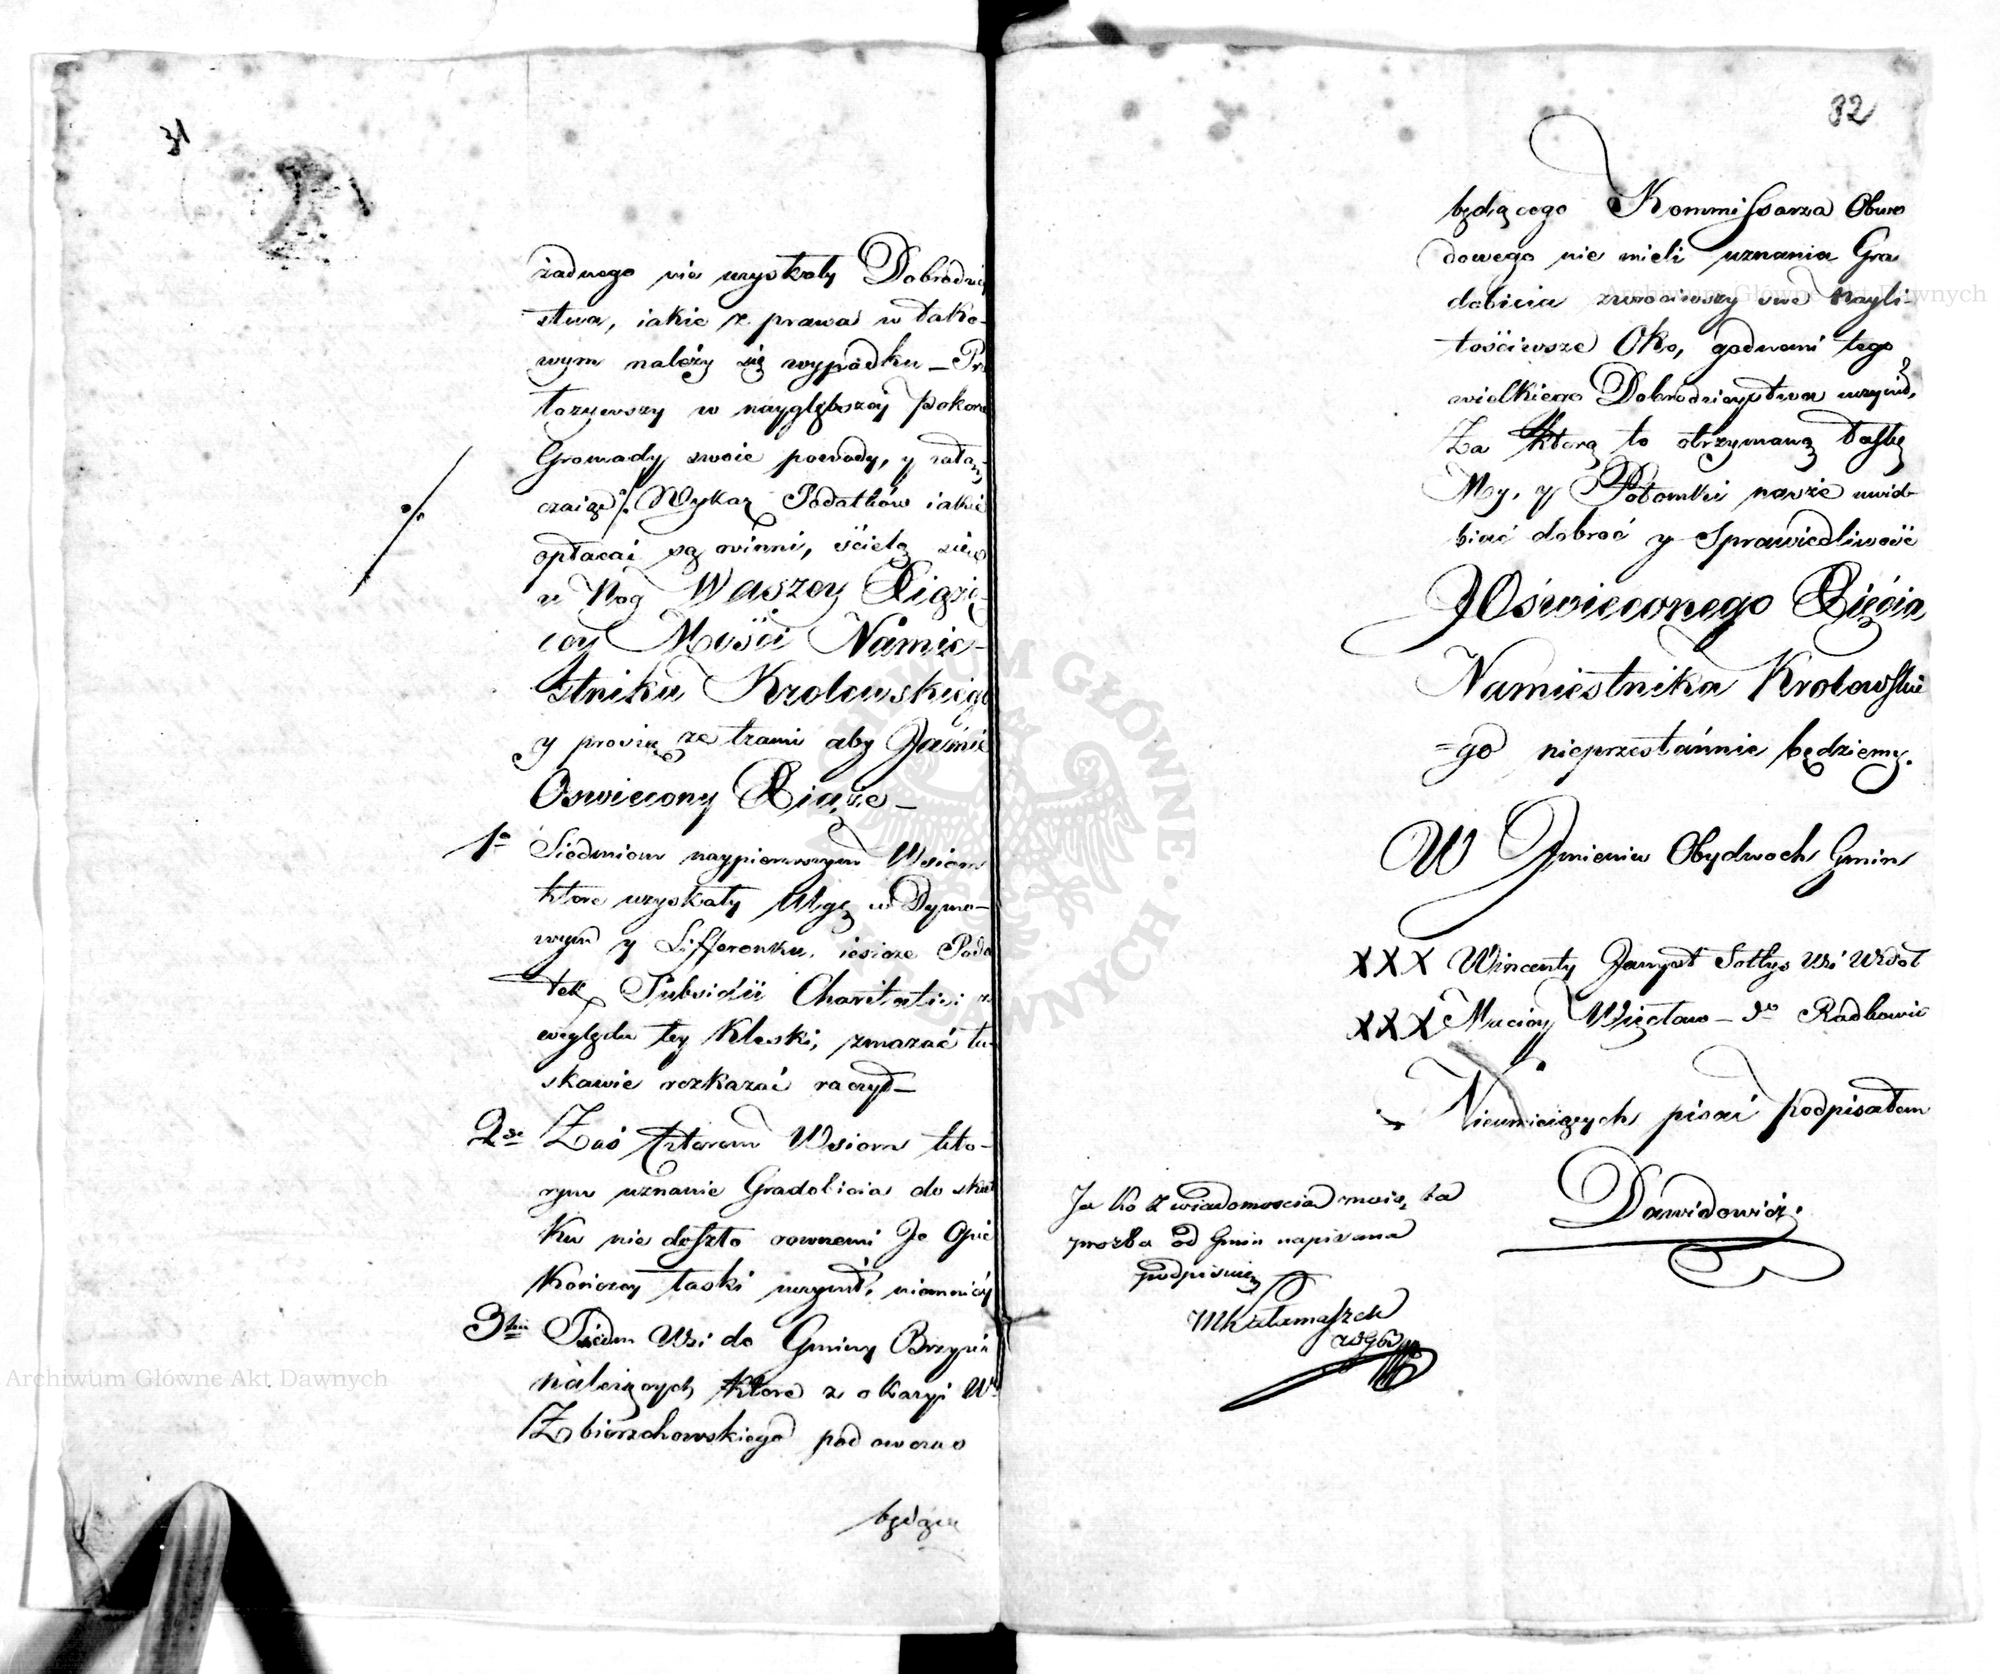 31
żadnego nie uzyskały Dobrodziey
stwa, iakie z prawa w tako-
wym należy się wypadku – Prz
łożywszy w naygłębszey pokorze
Gromady swoie powody, y załąn-
czaiąc Wykaz Podatków iakie
opłacać są winni, ścielą się
u Nog Waszey Xiążę-
cey Mości Namie-
stniku Krolewskiego
y proszą ze łzami aby Jaśnie
Oswiecony Xiąże –
1o Siedmiom naypierwszym Wsiom
ktore uzyskały Ulgę w Dymo-
wym y Lifferonku, ieszcze Poda
tek Subsidii Charitativi z
względu tey Klęski, zmazać ła-
skawie rozkazać raczył –
2do Zaś Czterem Wsiom kto-
rym uznanie Gradobicia do skut
ku nie doszło rownemi Je Opie
kończey łaski uczynił, niemniéy
3tio Siedm Wsi do Gminy Brzezin
należących ktore z okazyi W
Zbierzchowskiego pod owczas
będące
32
będącego Kommissarza Obwo
dowego nie mieli uznania Gra
dobicia zwrociwszy swe Nayli-
tościwsze Oko, godnemi tego
wielkiego Dobrodzieystwa uczynić,
Za ktorą to otrzymaną łaskę
My, y Potomki nasze uwiel
biać dobroć y Sprawiedliwość
JOświeconego Xięcia
Namiestnika Krolewskie
=go nieprzestannie będziemy.
W Jmieniu Obydwoch Gmin
XXX Wincenty Sołtys Wsi
XXX Maciey Więcław – do Radkowic
Nieumieiących pisać podpisałem
Dawidowicz
Jako z wiadomoscią moią ta
prozba od Gmin napisana
podpisuię